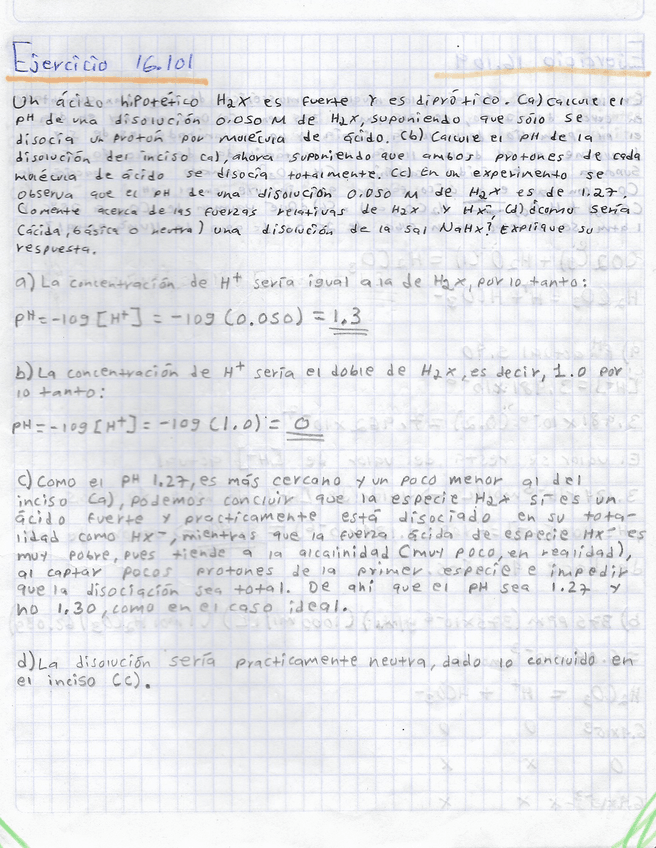 Ejercicio 16.101
Un ácido hipotético H2X es fuerte y es diprótico. (a) Calcule el
pH de una disolución 0.050 M de H2X, suponiendo que sólo se
disocia un protón por molécula de ácido. (b) Calcule el pH de la
disolución del inciso (a), ahora suponiendo que ambos protones de cada
molécula de ácido se disocia totalmente. (c) En un experimento se
observa que el pH de una disolución 0.050 M de H2X es de 1.27.
Comente acerca de las fuerzas relativas de H2X y HX-. (d) ¿cómo sería
(ácida, básica o neutra) una disolución de la sal NaHX? Explique su
respuesta.
a) La concentración de H+ sería igual a la de H2X, por lo tanto:
pH = -log [H+] = -log (0.050) = 1.3
b) La concentración de H+ sería el doble de H2X, es decir, 1.0 por
lo tanto:
pH = -log [H+] = -log (1.0) = 0
c) Como el pH 1.27, es más cercano y un poco menor al del
inciso (a), podemos concluir que la especie H2X si es un
ácido fuerte y practicamente está disociado en su tota-
lidad como HX-, mientras que la fuerza ácida de especie HX- es
muy pobre, pues tiende a la alcalinidad (muy poco, en realidad),
al captar pocos protones de la primer especie e impedir
que la disociación sea total. De ahí que el pH sea 1.27 y
no 1.30, como en el caso ideal.
d) La disolución sería practicamente neutra, dado lo concluido en
el inciso (c).